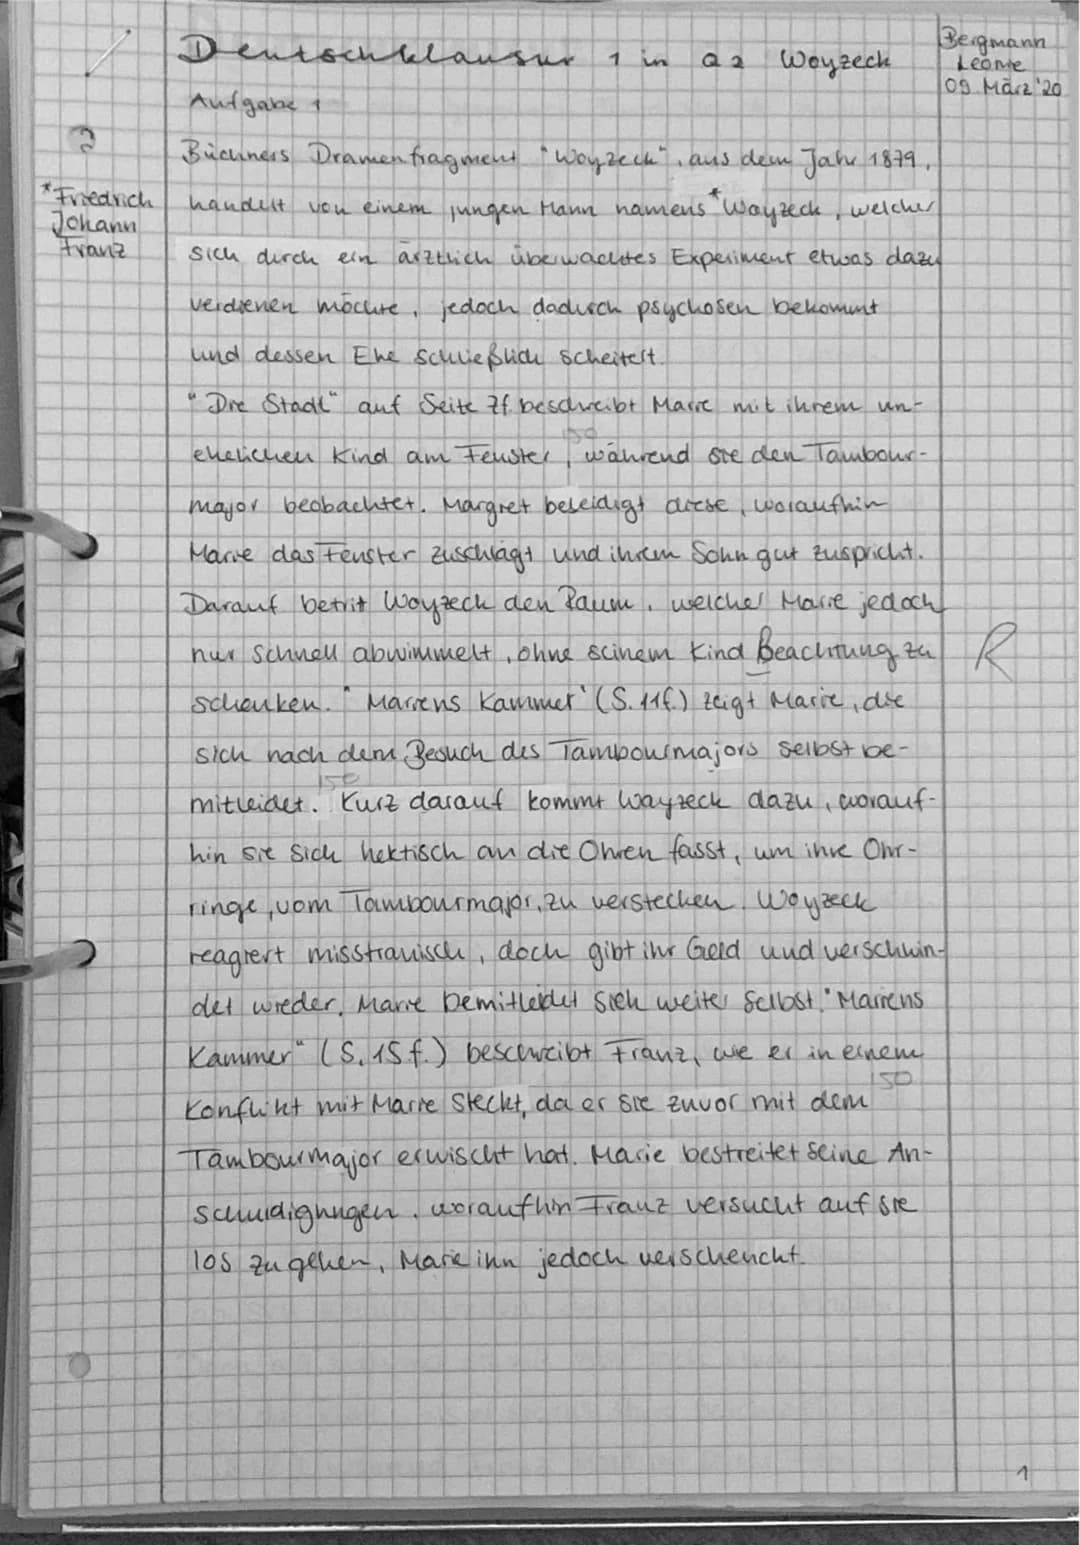 Deutschklausur 1 in Q2 Woyzeck
Bergmann
Leonie
09. März '20
Aufgabe 1
Büchners Dramenfragment "Woyzeck", aus dem Jahr 1879,
*Friedrich
Johann
Franz
handelt von einem jungen Mann namens *Woyzeck, welcher
sich durch ein ärztlich überwachtes Experiment etwas dazu
verdienen möchte, jedoch dadurch psychosen bekommt
und dessen Ehe schließlich scheitert.
"Die Stadt" auf Seite 7f. beschreibt Marie mit ihrem un-
150
ehelichen Kind am Fenster, während sie den Tambour-
major beobachtet. Margret beleidigt diese, woraufhin
Marie das Fenster zuschlägt und ihrem Sohn gut zuspricht.
Darauf betrit Woyzeck den Raum, welcher Marie jedoch
nur schnell abwimmelt, ohne seinem Kind Beachtung zu
R
schenken. "Mariens Kammer" (S. 11f.) zeigt Marie, die
sich nach dem Besuch des Tambourmajors selbst be-
150
mitleidet. Kurz darauf kommt Woyzeck dazu, worauf-
hin sie sich hektisch an die Ohren fasst, um ihre Ohr-
ringe, vom Tambourmajor, zu verstecken. Woyzeck
reagiert misstrauisch, doch gibt ihr Geld und verschwin-
det wieder. Marie bemitleidet sich weiter selbst. "Mariens
Kammer" (S. 15 f.) beschreibt Franz, wie er in einem
150
Konflikt mit Marie steckt, da er sie zuvor mit dem
Tambourmajor erwischt hat. Marie bestreitet seine An-
schuldigungen, woraufhin Franz versucht auf sie
los zu gehen, Marie ihn jedoch verscheucht.
1